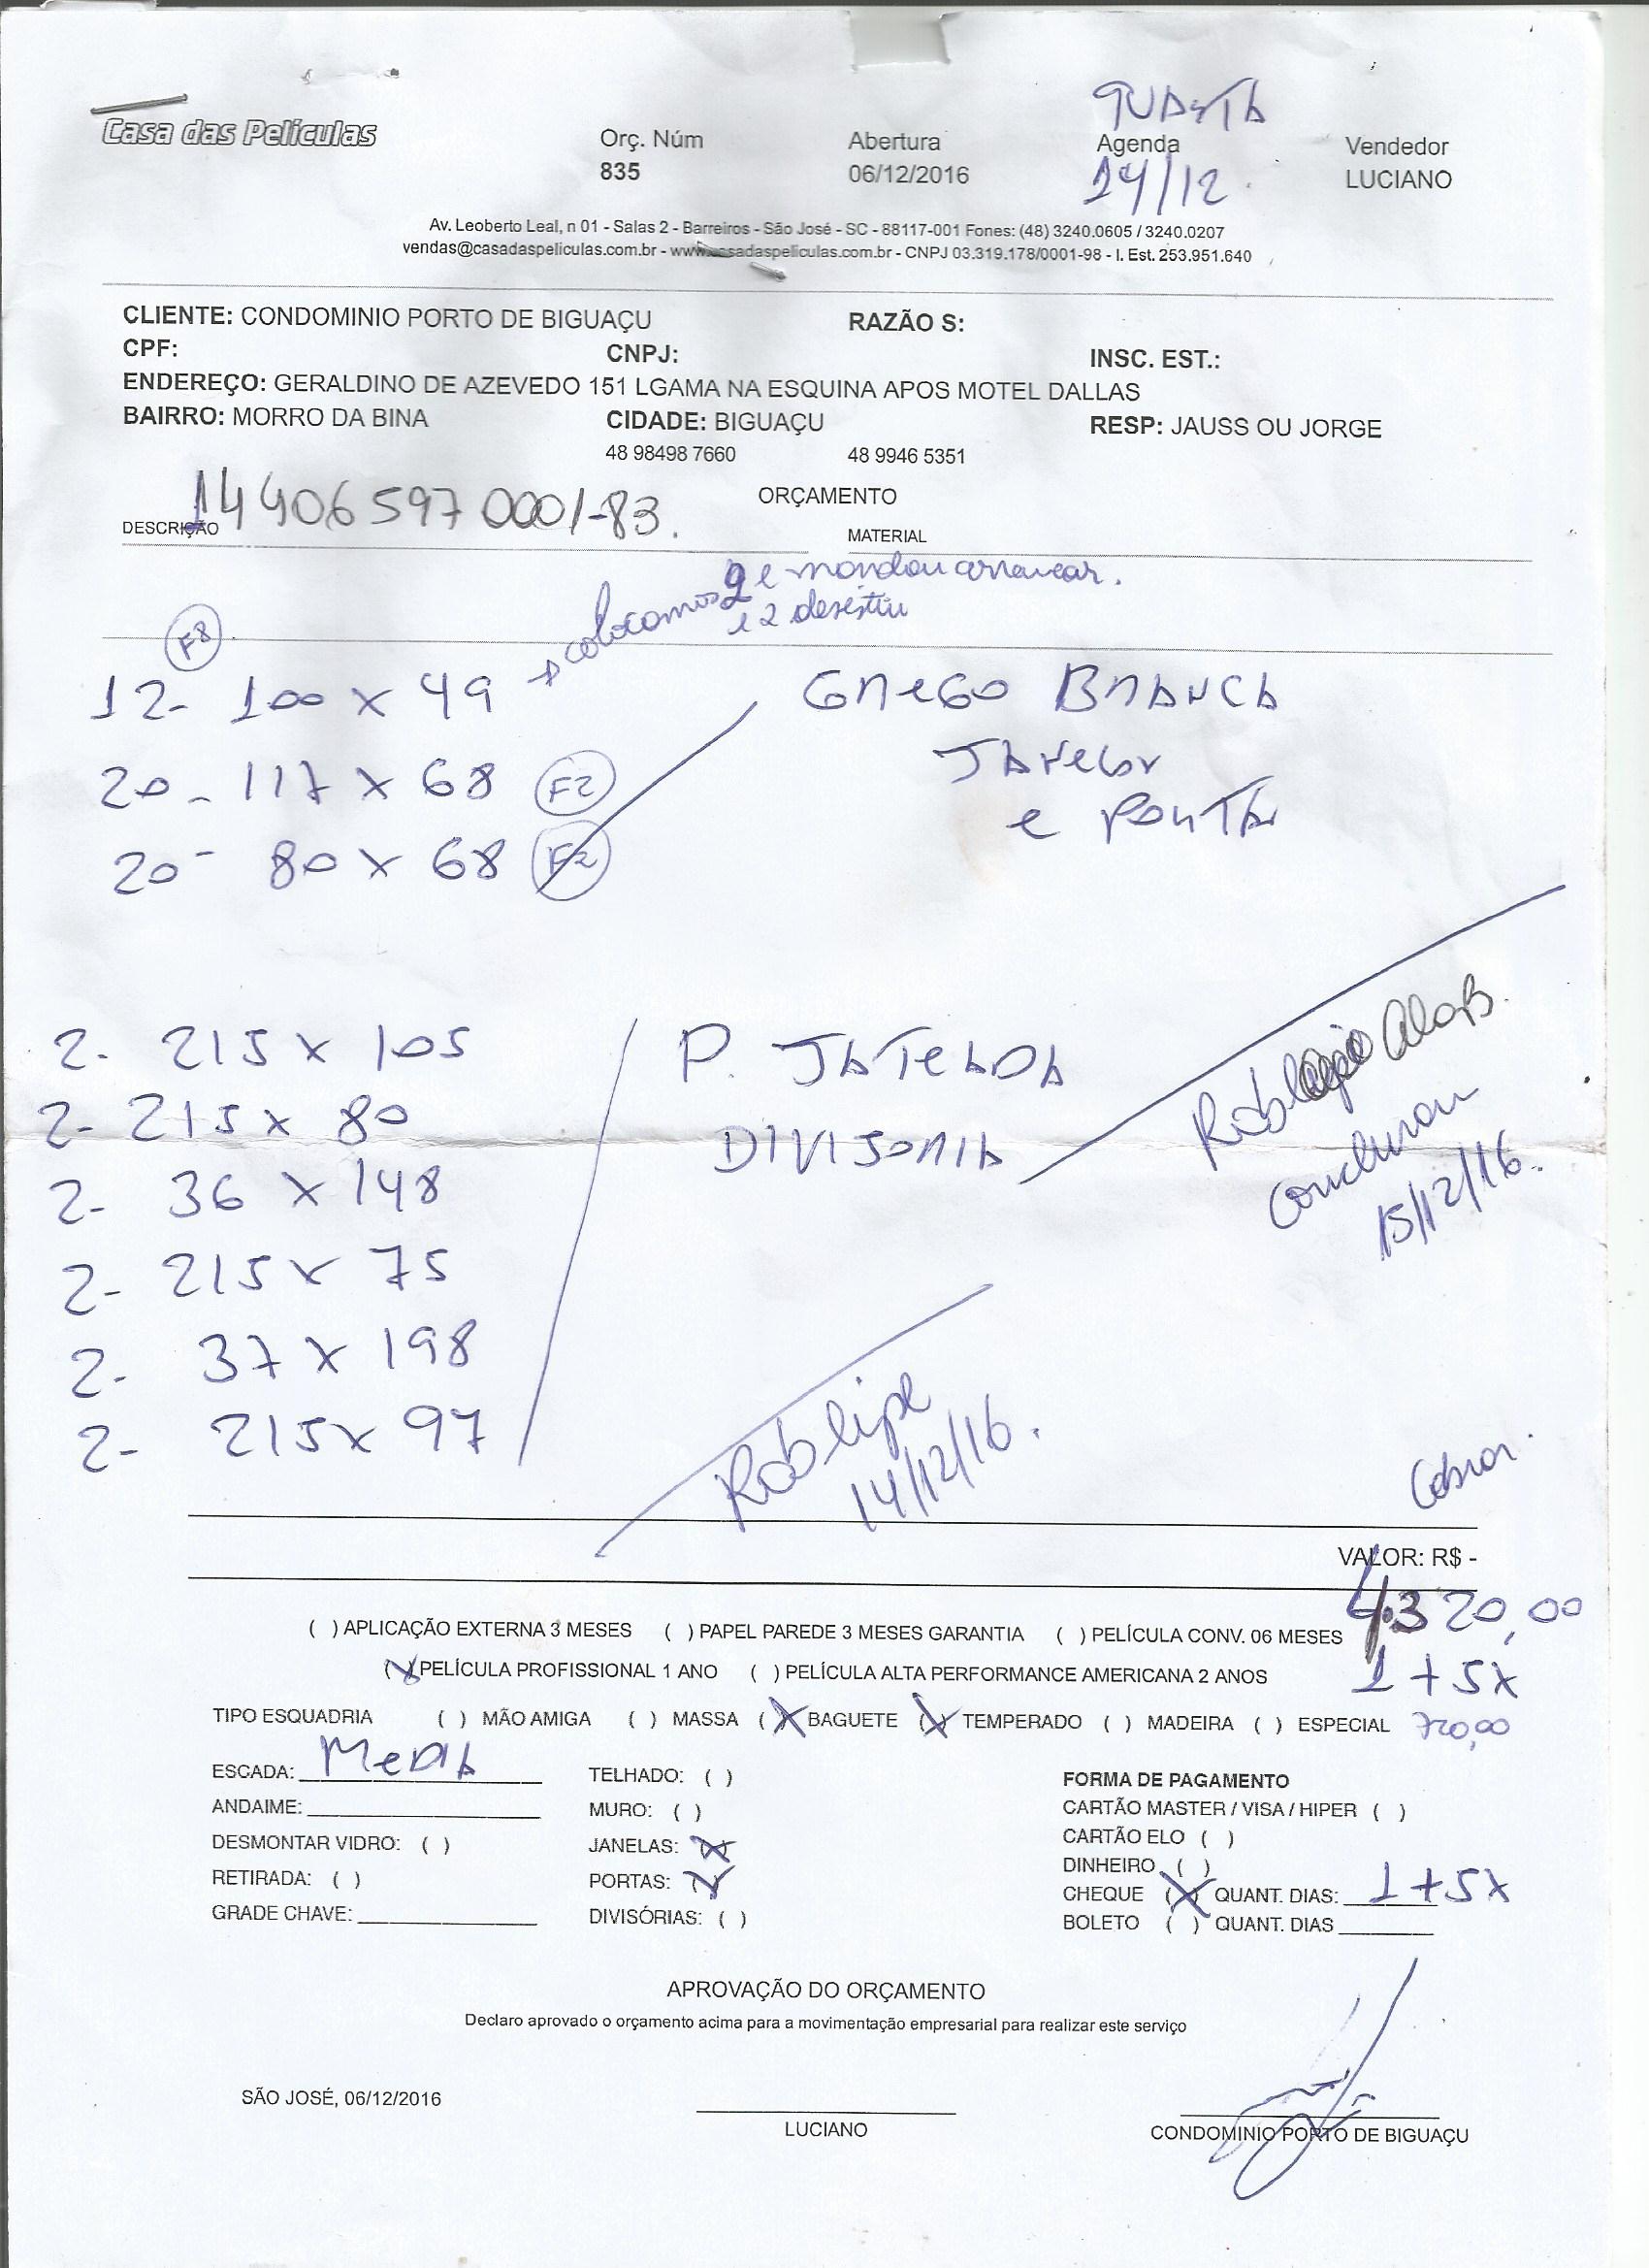 QUARTA
Casa das Películas
Orç. Núm Abertura Agenda Vendedor
835 06/12/2016 14/12 LUCIANO
Av. Leoberto Leal, n 01 - Salas 2 - Barreiros - São José - SC - 88117-001 Fones: (48) 3240.0605 / 3240.0207
vendas@casadaspeliculas.com.br - www.casadaspeliculas.com.br - CNPJ 03.319.178/0001-98 - I. Est. 253.951.640
CLIENTE: CONDOMINIO PORTO DE BIGUAÇU RAZÃO S:
CPF: CNPJ: INSC. EST.:
ENDEREÇO: GERALDINO DE AZEVEDO 151 LGAMA NA ESQUINA APOS MOTEL DALLAS
BAIRRO: MORRO DA BINA CIDADE: BIGUAÇU RESP: JAUSS OU JORGE
48 98498 7660 48 9946 5351
14406597 0001-83.
ORÇAMENTO
DESCRIÇÃO MATERIAL
colocamos 2 e mandou arrancar.
e 2 desistiu
F8
12- 100 x 49 GREGO BRANCA
20- 117 x 68 F2 JANELAS
20- 80 x 68 F2 e PORTAS
2- 215 x 105 P. JATEADA
2- 215 x 80 DIVISORIA
2- 36 x 148
2- 215 x 75
2- 37 x 198
2- 215 x 97
concluiram
15/12/16.
14/12/16.
Cobrar.
VALOR: R$ -
4.320,00
( ) APLICAÇÃO EXTERNA 3 MESES ( ) PAPEL PAREDE 3 MESES GARANTIA ( ) PELÍCULA CONV. 06 MESES
(X) PELÍCULA PROFISSIONAL 1 ANO ( ) PELÍCULA ALTA PERFORMANCE AMERICANA 2 ANOS 1 + 5X
TIPO ESQUADRIA ( ) MÃO AMIGA ( ) MASSA (X) BAGUETE (X) TEMPERADO ( ) MADEIRA ( ) ESPECIAL 720,00
ESCADA: MEDIA TELHADO: ( ) FORMA DE PAGAMENTO
ANDAIME: MURO: ( ) CARTÃO MASTER / VISA / HIPER ( )
DESMONTAR VIDRO: ( ) JANELAS: (X) CARTÃO ELO ( )
RETIRADA: ( ) PORTAS: (X) DINHEIRO ( )
GRADE CHAVE: DIVISÓRIAS: ( ) CHEQUE (X) QUANT. DIAS: 1+5X
BOLETO ( ) QUANT. DIAS
APROVAÇÃO DO ORÇAMENTO
Declaro aprovado o orçamento acima para a movimentação empresarial para realizar este serviço
SÃO JOSÉ, 06/12/2016
LUCIANO CONDOMINIO PORTO DE BIGUAÇU